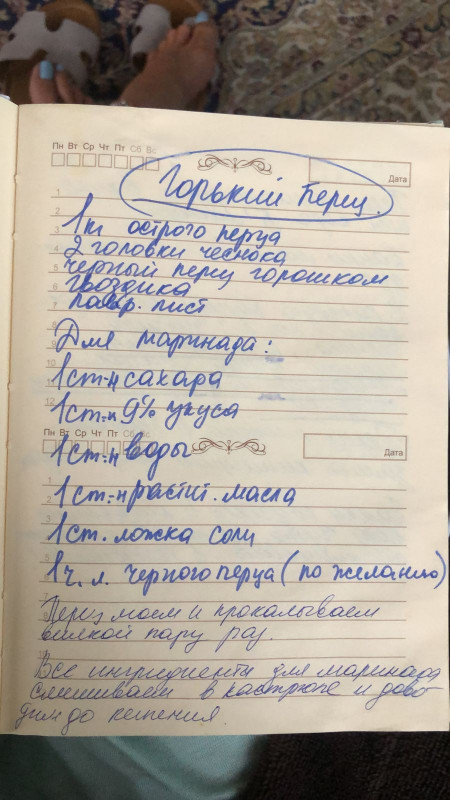 Пн Вт Ср Чт Пт Сб Вс
Дата
Горький перец
1кг острого перца
2 головки чеснока
черный перец горошком
гвоздика
лавр. лист
Для маринада:
1 ст-н сахара
1 ст-н 9% уксуса
Пн Вт Ср Чт Пт Сб Вс
Дата
1 ст-н воды
1 ст-н растит. масла
1 ст. ложка соли
1 ч. л. черного перца (по желанию)
Перец моем и прокалываем
вилкой пару раз.
Все ингридиенты для маринада
смешиваем в кастрюле и дово
дим до кипения.